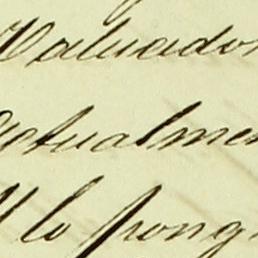 Valuador
actualmen
lo pong